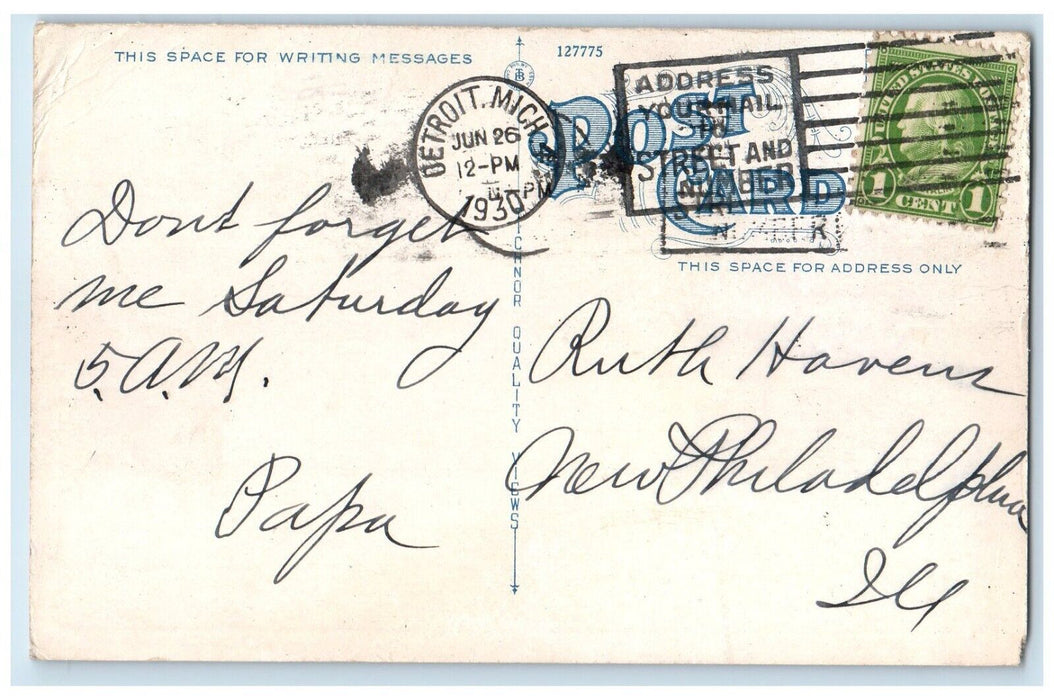 THIS SPACE FOR WRITING MESSAGES
127775
POST CARD
DETROIT, MICH.
JUN 26
12-PM
1930
ADDRESS
YOUR MAIL
TO
STREET AND
NUMBER
UNITED STATES POSTAGE
1 CENT 1
THIS SPACE FOR ADDRESS ONLY
Dont forget
me Saturday
5. A.M.
Papa
QUALITY VIEWS
Ruth Havens
New Philadelphia
Ill